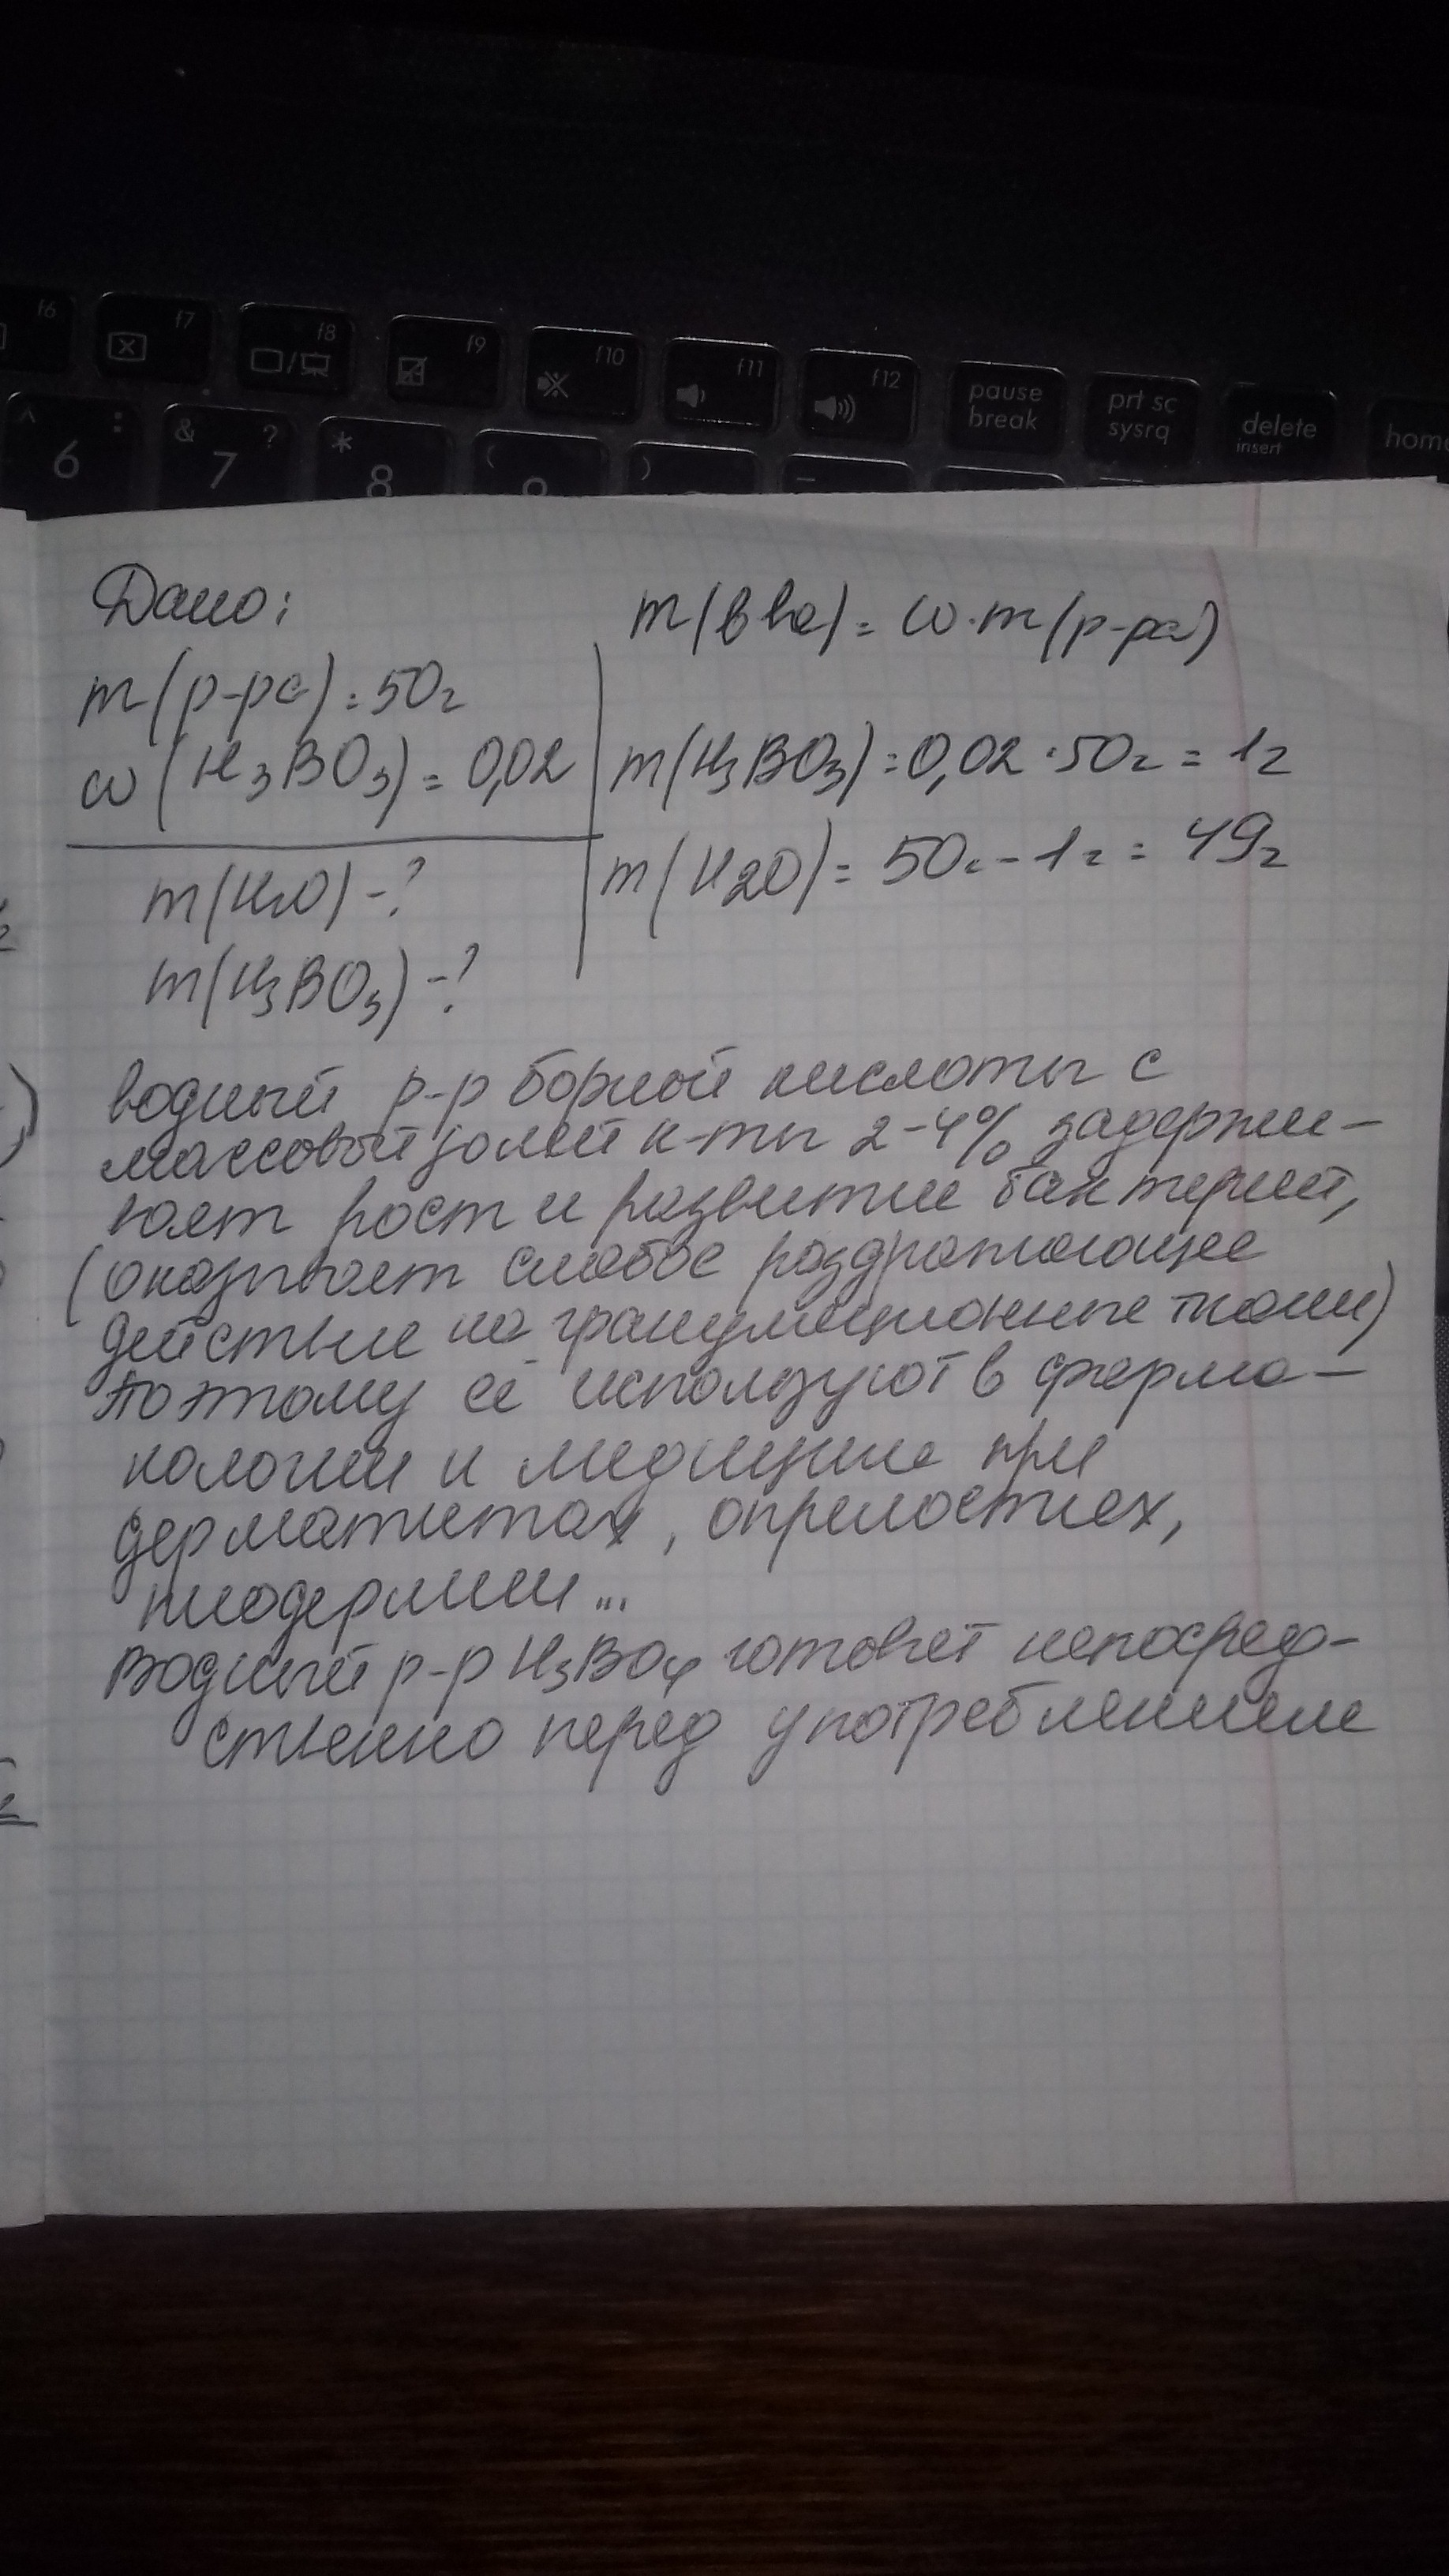 f6 f7 f8 f9 f10 f11 f12 pause break prt sc sysrq delete insert hom
^ 6 : & 7 ? * 8 ( 9 )
Дано:
m(р-ра) = 50г
ω(H3BO3) = 0,02
m(H2O) - ?
m(H3BO3) - ?
m(в-ва) = ω·m(р-ра)
m(H3BO3) = 0,02·50г = 1г
m(H2O) = 50г - 1г = 49г
водный р-р борной кислоты с
массовой долей к-ты 2-4% задержи-
вает рост и развитие бактерий,
(оказывает слабое раздражающее
действие на грануляционные ткани)
поэтому её используют в фарма-
кологии и медицине при
дерматитах, опрелостях,
пиодермии...
Водный р-р H3BO4 готовят непосред-
ственно перед употреблением